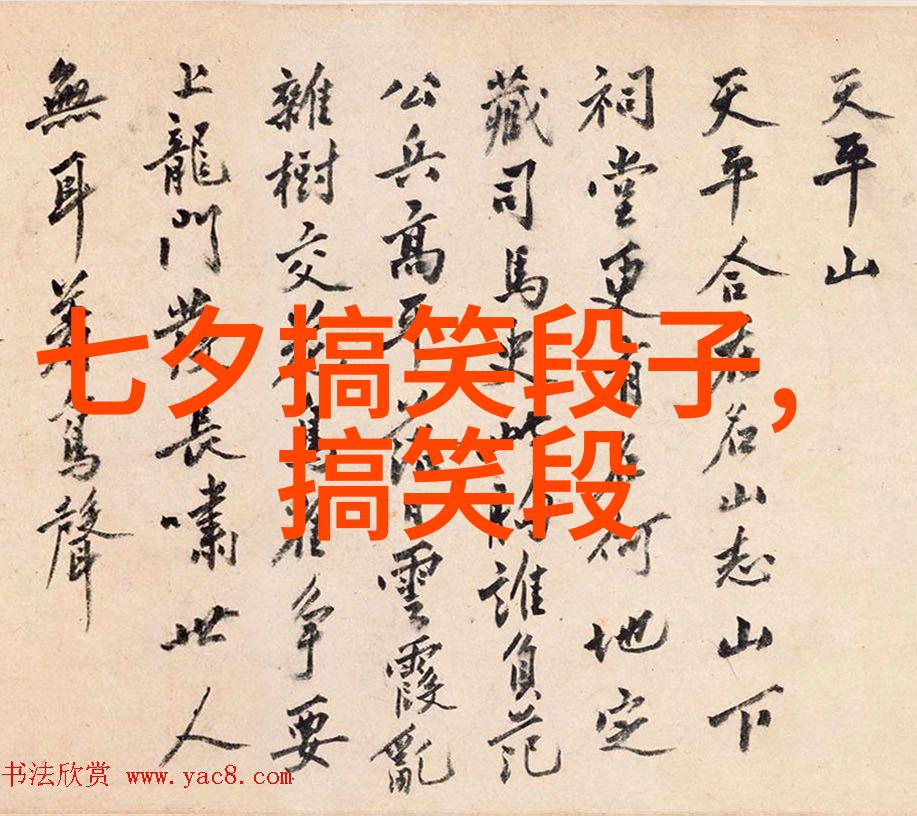 天平山
天平合名山志山下
祠堂更有何地定
藏司馬史此誰負范
公兵高雲霞亂
雜樹交爭要
上龍門發長嘯世人
無耳聲
七夕搞笑段子,
搞笑段
书法欣赏 www.yac8.com